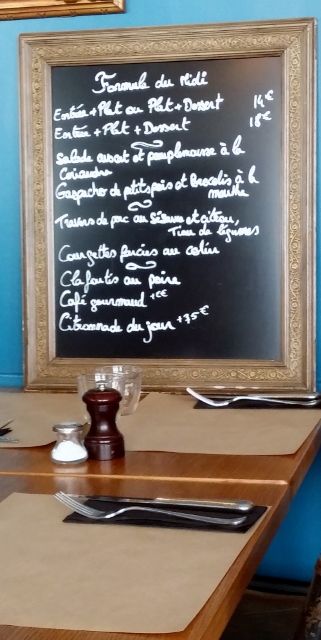 Formule du Midi
Entrée + Plat ou Plat + Dessert 14€
Entrée + Plat + Dessert 18€
Salade avocat et pamplemousse à la
Coriandre
Gaspacho de petits pois et brocolis à la
menthe
Travers de porc au Sésame et citron,
Tian de légumes
Courgettes farcies au colin
Clafoutis au poire
Café gourmand
Citronnade du jour +3,5€